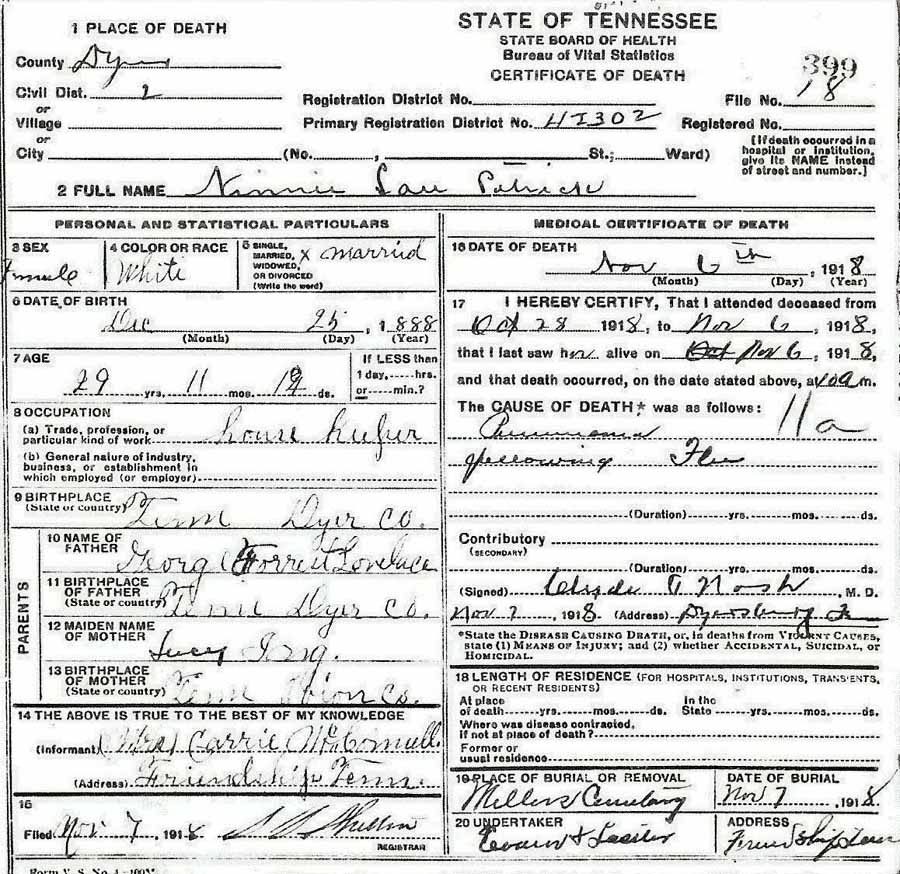 STATE OF TENNESSEE
STATE BOARD OF HEALTH
Bureau of Vital Statistics
CERTIFICATE OF DEATH
399
1 PLACE OF DEATH
County Dyer
Civil Dist. 2
or
Village
or
City (No. , St.; Ward)
Registration District No. File No. 18
Primary Registration District No. 41302 Registered No.
[If death occurred in a
hospital or institution,
give its NAME instead
of street and number.]
2 FULL NAME Ninnie Lou Patrick
PERSONAL AND STATISTICAL PARTICULARS
3 SEX
Female
4 COLOR OR RACE
White
5 SINGLE,
MARRIED, x married
WIDOWED,
OR DIVORCED
(Write the word)
6 DATE OF BIRTH
Dec 25, 1888
(Month) (Day) (Year)
7 AGE
29 yrs. 11 mos. ds.
If LESS than
1 day, hrs.
or min.?
8 OCCUPATION
(a) Trade, profession, or
particular kind of work house keeper
(b) General nature of industry,
business, or establishment in
which employed (or employer)
9 BIRTHPLACE
(State or country) Tenn Dyer Co.
PARENTS
10 NAME OF
FATHER
Georg Forrest Lovelace
11 BIRTHPLACE
OF FATHER
(State or country) Tenn Dyer Co.
12 MAIDEN NAME
OF MOTHER
Lucy
13 BIRTHPLACE
OF MOTHER
(State or country) Tenn Obion Co.
14 THE ABOVE IS TRUE TO THE BEST OF MY KNOWLEDGE
(Informant) (Mrs) Carrie McConnell
(Address) Friendship Tenn.
15
Filed Nov 7, 1918
REGISTRAR
Form V. S. No.
MEDICAL CERTIFICATE OF DEATH
16 DATE OF DEATH
Nov 6th, 1918
(Month) (Day) (Year)
17 I HEREBY CERTIFY, That I attended deceased from
Oct 28 1918, to Nov 6, 1918,
that I last saw her alive on Oct Nov 6, 1918,
and that death occurred, on the date stated above, at m.
The CAUSE OF DEATH* was as follows: 11a
Pneumonia
following Flu
(Duration) yrs. mos. ds.
Contributory
(SECONDARY)
(Duration) yrs. mos. ds.
(Signed) Clyde T Nash, M. D.
Nov 7, 1918 (Address) Dyersburg
*State the DISEASE CAUSING DEATH, or, in deaths from VIOLENT CAUSES,
state (1) MEANS OF INJURY; and (2) whether ACCIDENTAL, SUICIDAL, or
HOMICIDAL.
18 LENGTH OF RESIDENCE (FOR HOSPITALS, INSTITUTIONS, TRANSIENTS,
OR RECENT RESIDENTS)
At place In the
of death yrs. mos. ds. State yrs. mos. ds.
Where was disease contracted,
if not at place of death?
Former or
usual residence
19 PLACE OF BURIAL OR REMOVAL
Millers Cemetary
DATE OF BURIAL
Nov 7, 1918
20 UNDERTAKER
ADDRESS
Friendship Tenn